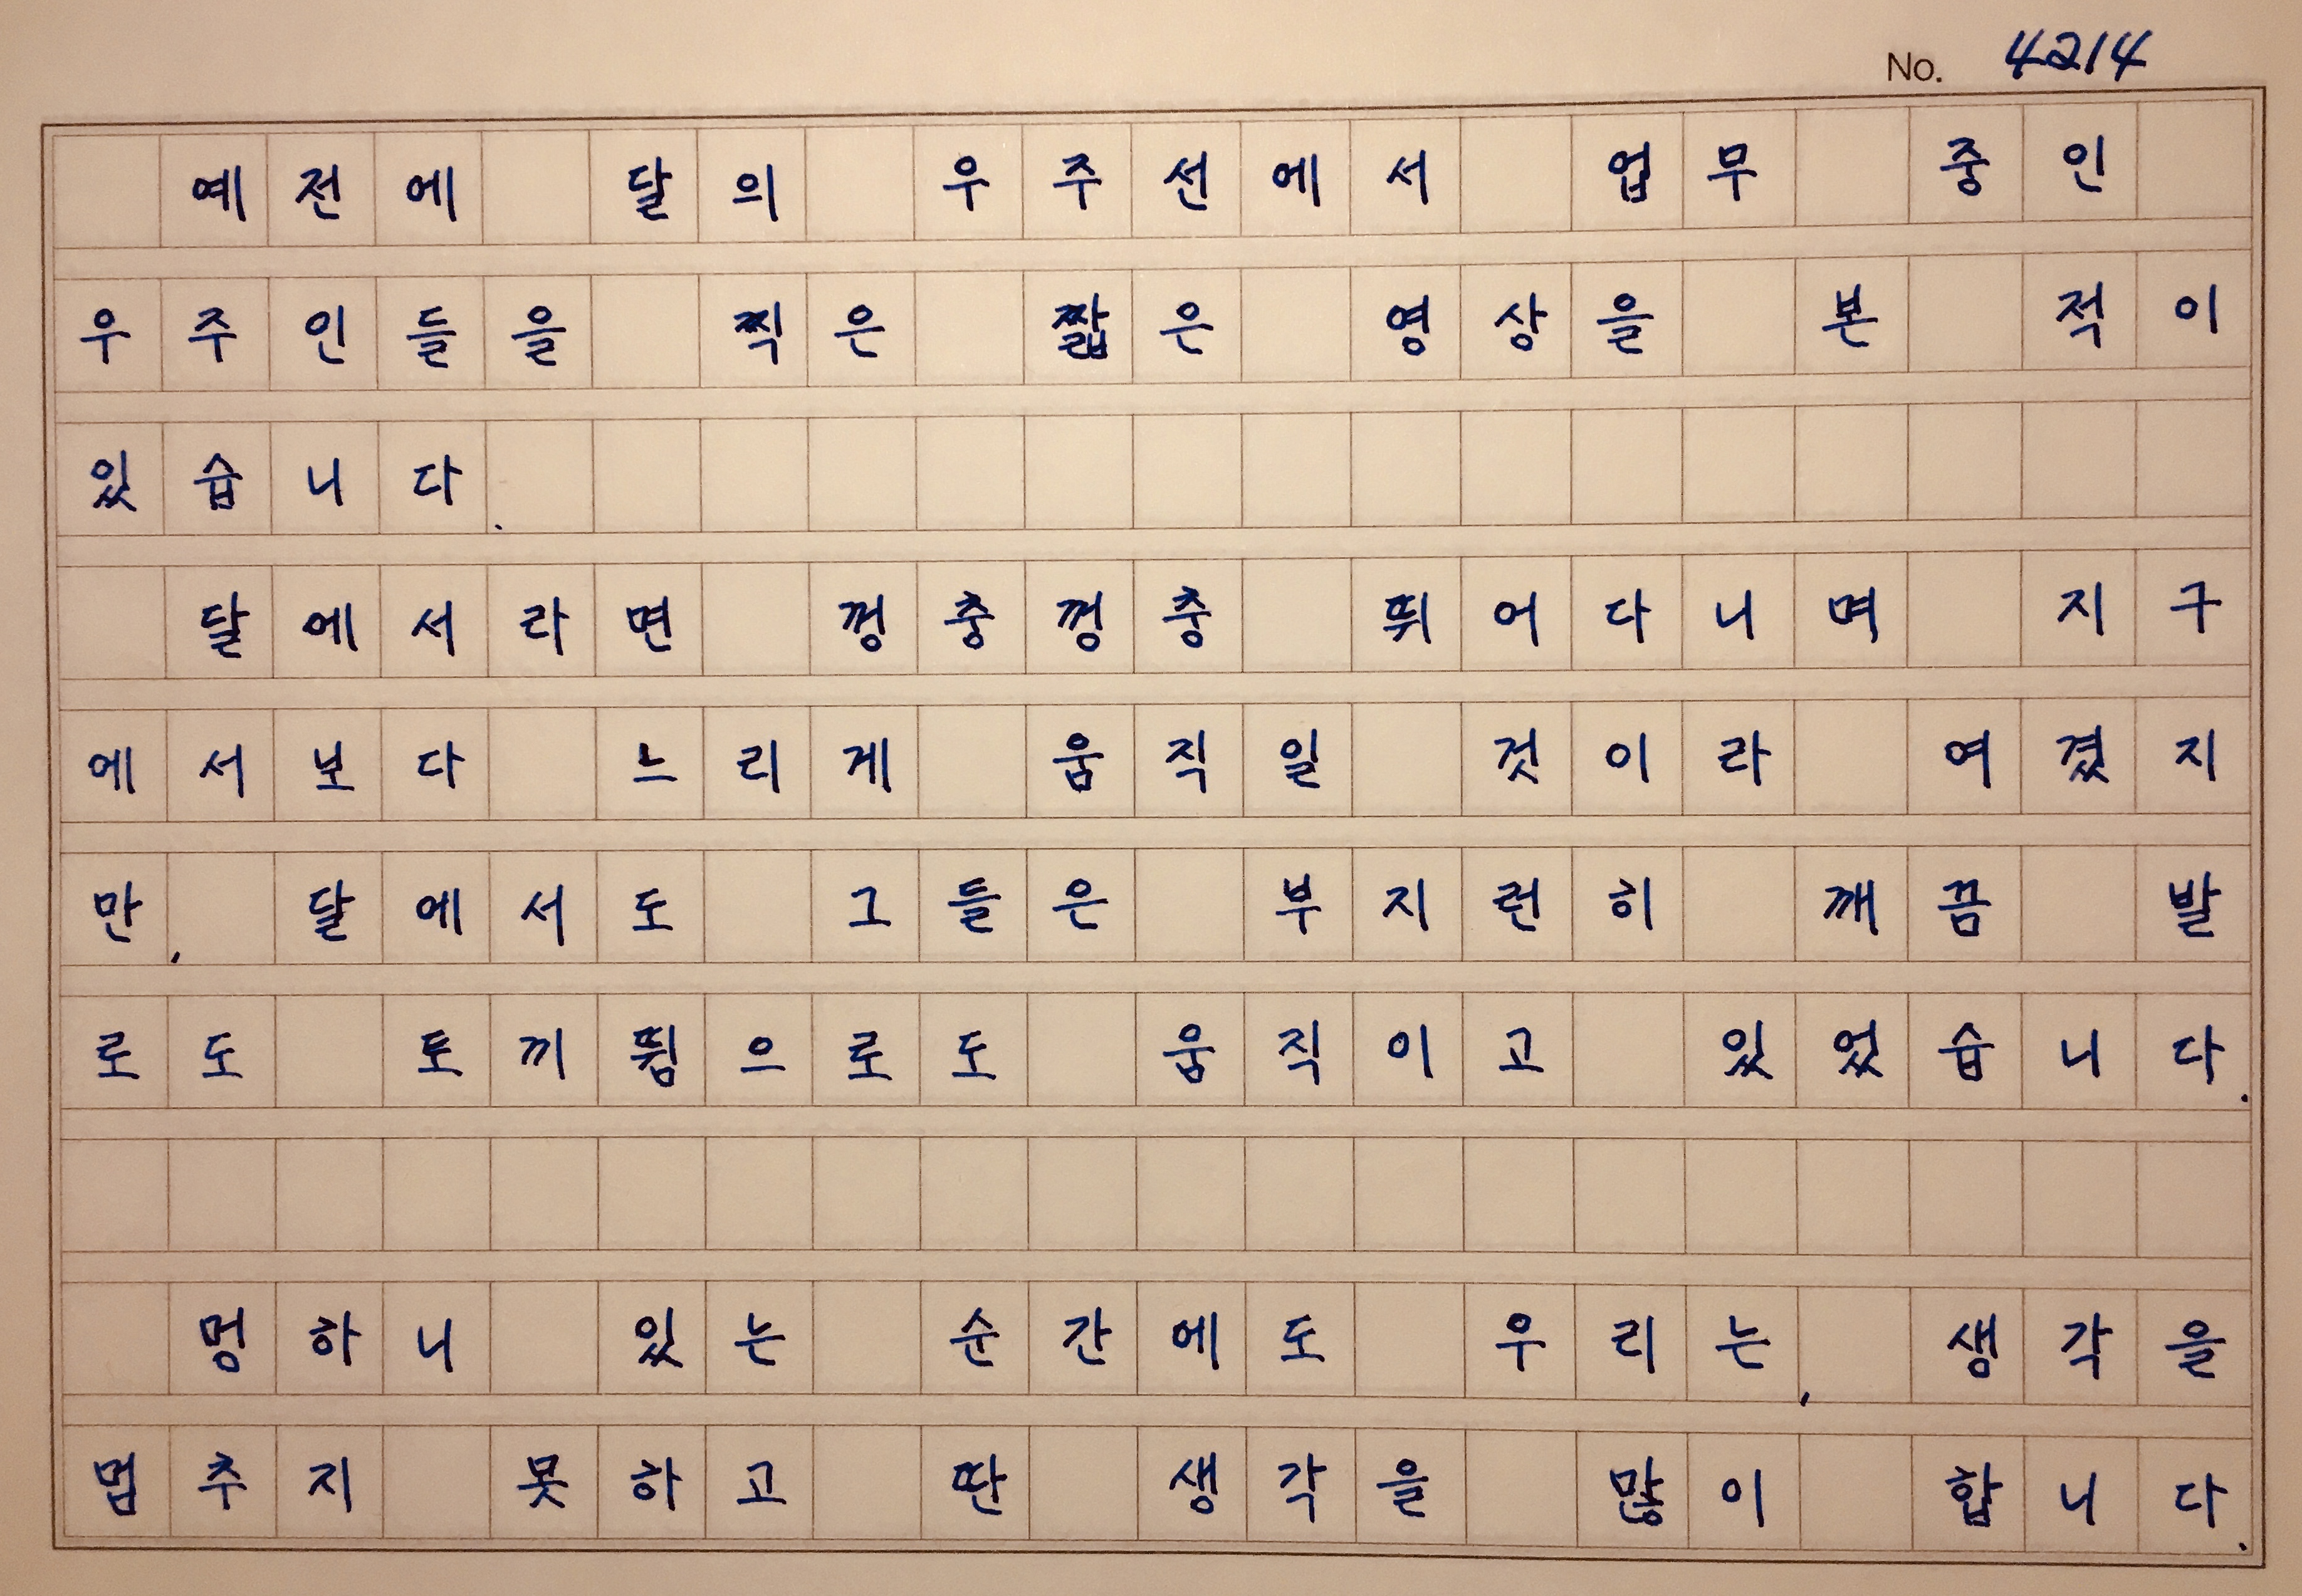 No. 4214
예전에 달의 우주선에서 업무 중인
우주인들을 찍은 짧은 영상을 본 적이
있습니다.
달에서라면 껑충껑충 뛰어다니며 지구
에서보다 느리게 움직일 것이라 여겼지
만, 달에서도 그들은 부지런히 깨끔 발
로도 토끼뜀으로도 움직이고 있었습니다.
멍하니 있는 순간에도 우리는, 생각을
멈추지 못하고 딴 생각을 많이 합니다.